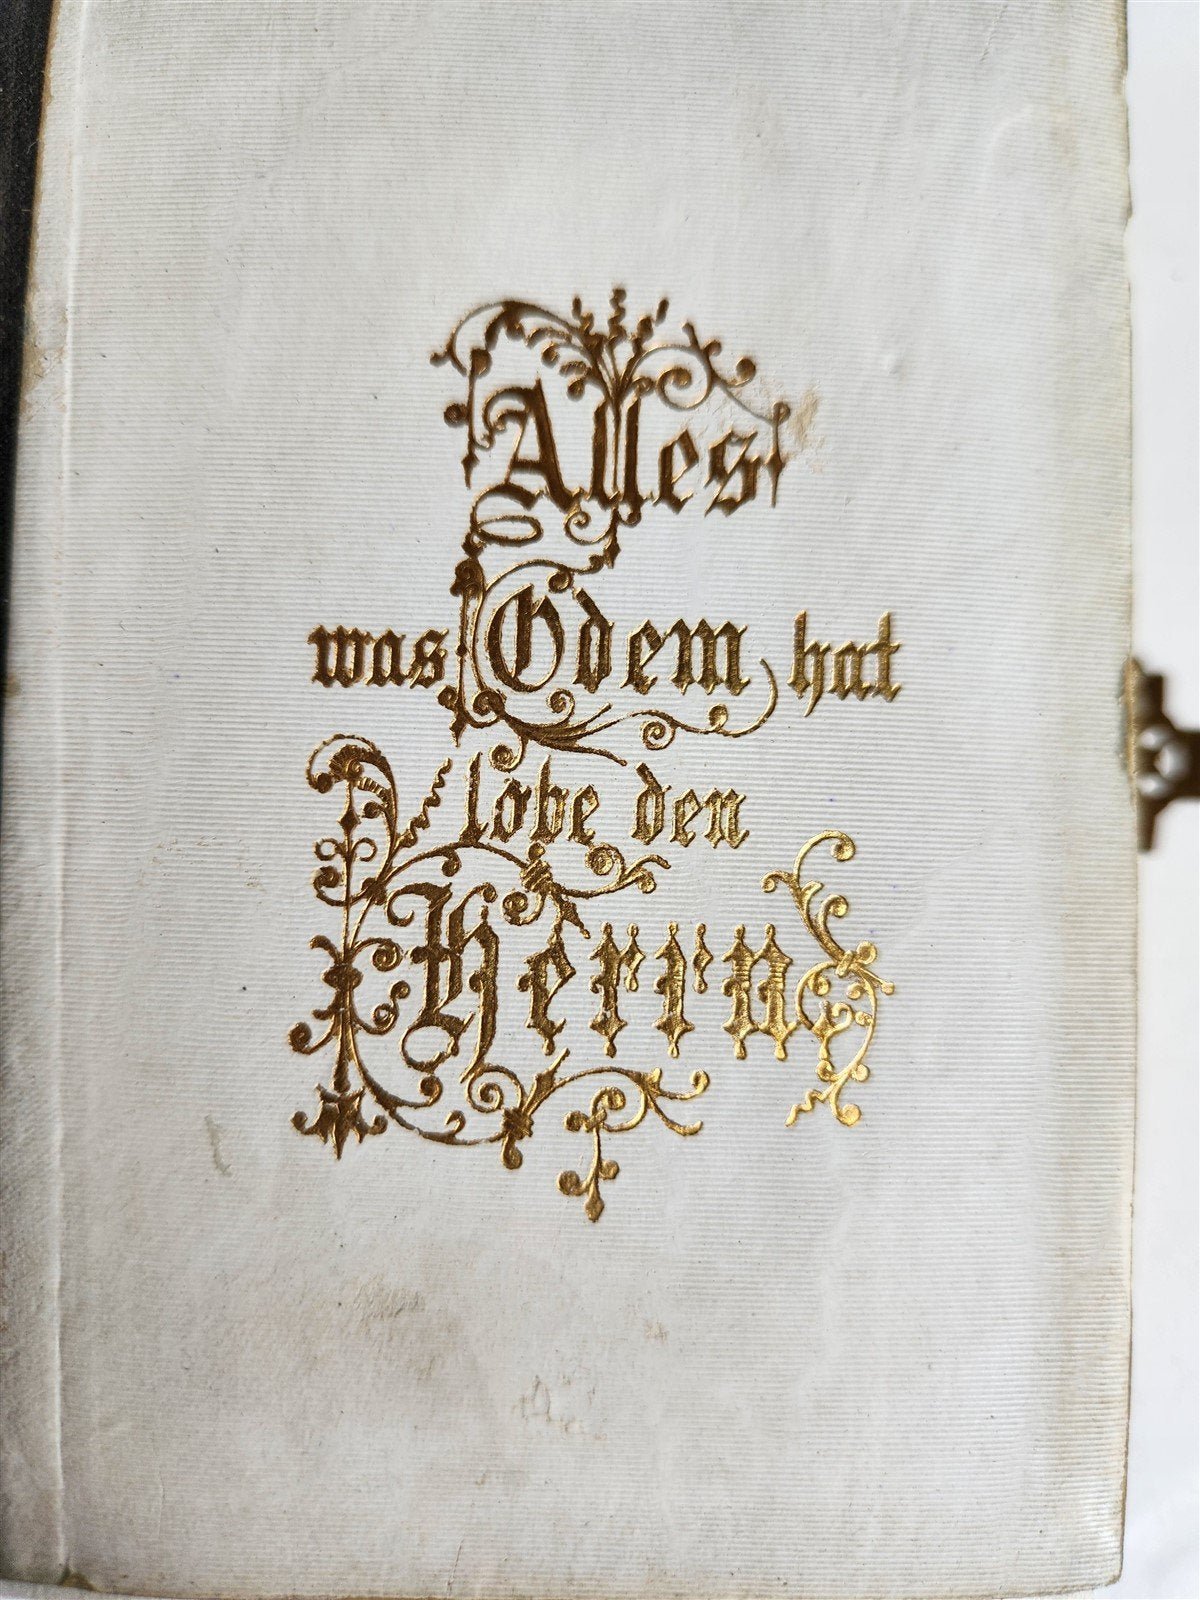 Alles
was Odem hat
lobe den
Herrn.